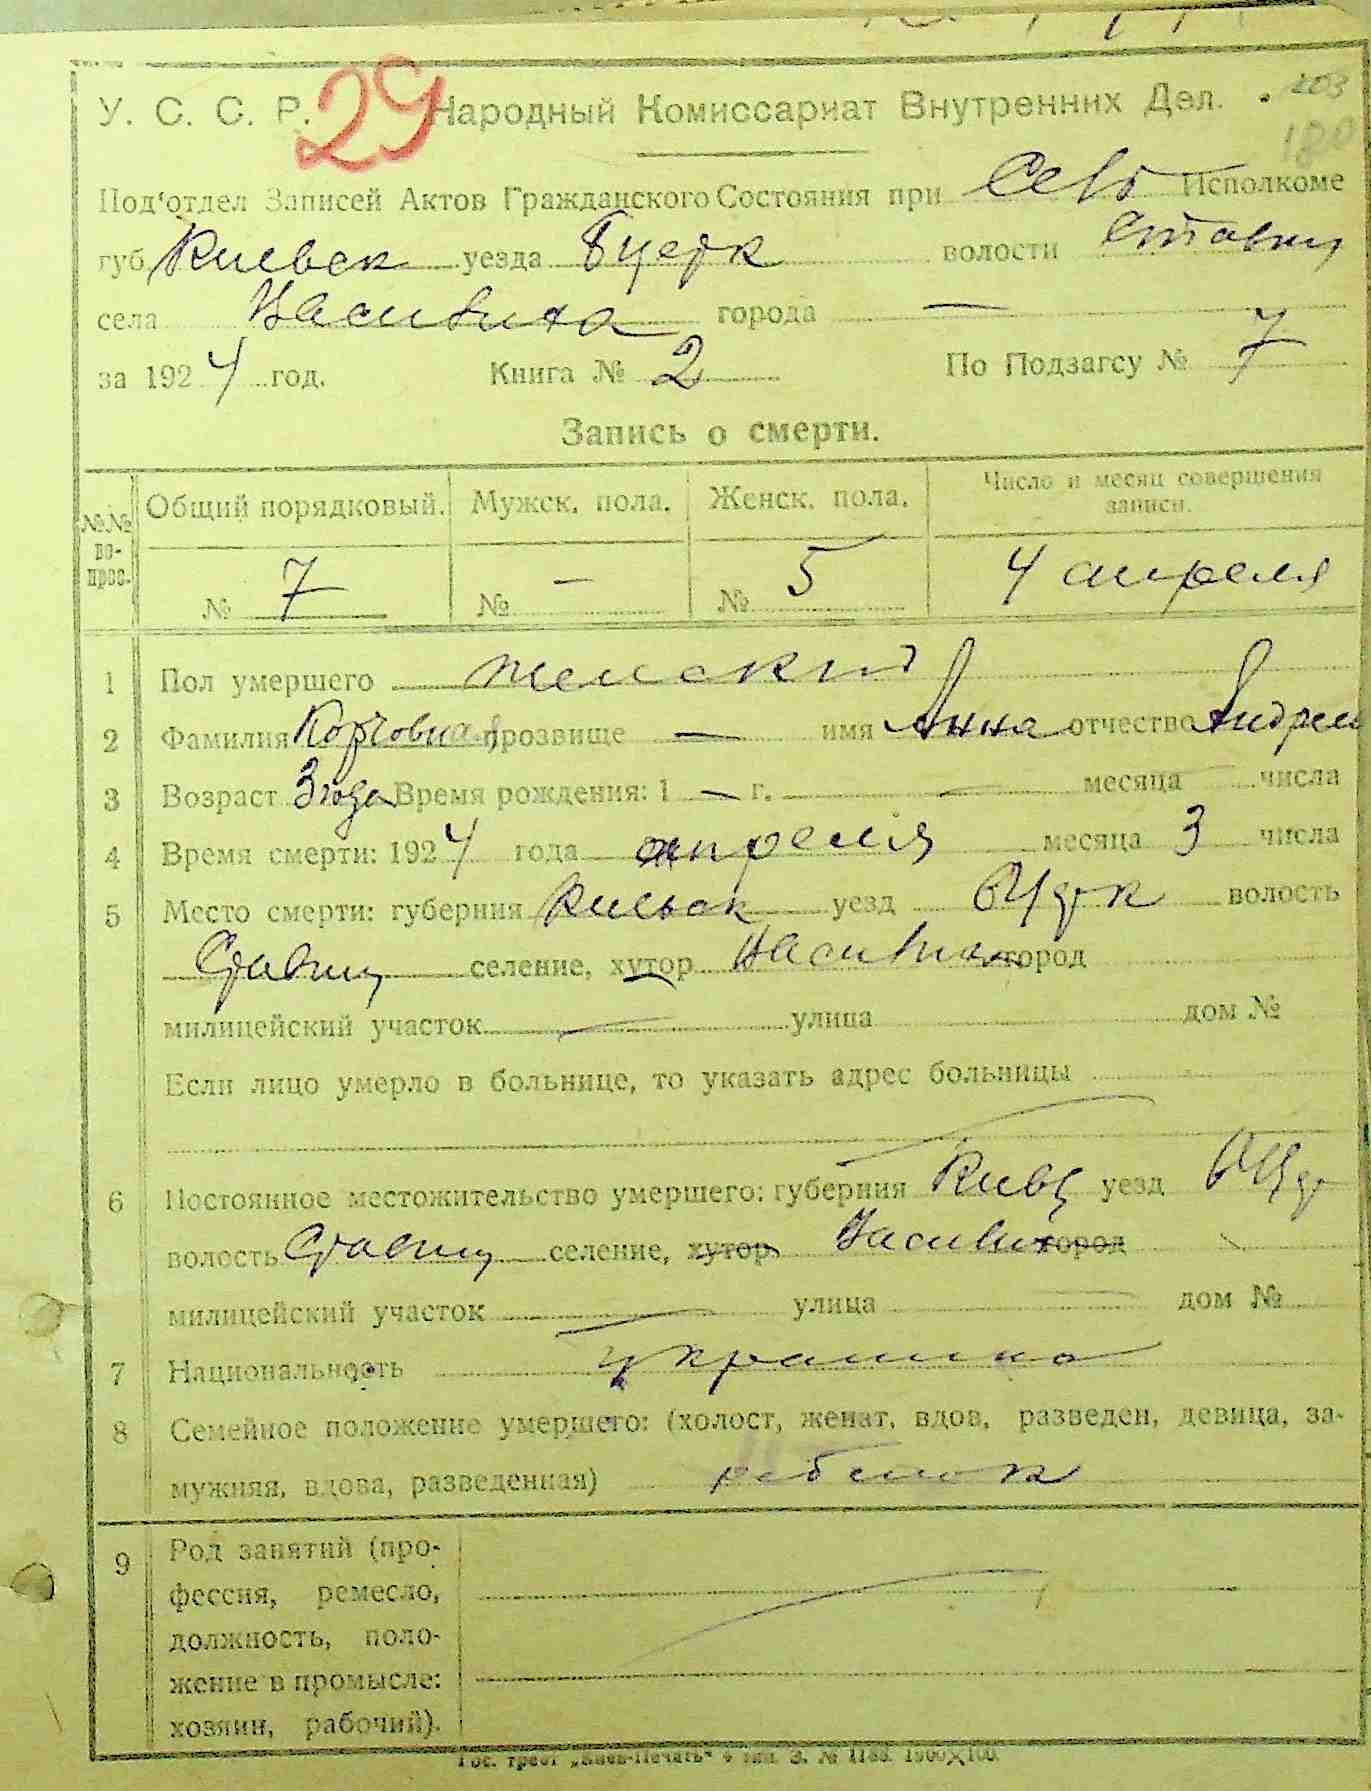 203
У. С. С. Р. 29 Народный Комиссариат Внутренних Дел.
180
Под‘отдел Записей Актов Гражданского Состояния при Сель Исполкоме
губ. Киевск уезда Бцерк волости Ставищ
села Насивина города —
за 1924 год. Книга № 2 По Подзагсу № 7
Запись о смерти.
№№ во-прос. Общий порядковый. Мужск. пола. Женск. пола. Число и месяц совершения записи.
№ 7 № — № 5 4 апреля
1 Пол умершего женский
2 Фамилия прозвище — имя Анна отчество Андрее
3 Возраст 3 года Время рождения: 1 — г. — месяца числа
4 Время смерти: 1924 года апреля месяца 3 числа
5 Место смерти: губерния Киевск уезд БЦрк волость
Ставищ селение, хутор город
милицейский участок — улица дом №
Если лицо умерло в больнице, то указать адрес больницы
6 Постоянное местожительство умершего: губерния Киев уезд БЦр
волость Ставищ селение, хутор город
милицейский участок — улица — дом №
7 Национальность украинка
8 Семейное положение умершего: (холост, женат, вдов, разведен, девица, за-
мужняя, вдова, разведенная) ребенок
9 Род занятий (про-
фессия, ремесло,
должность, поло-
жение в промысле:
хозяин, рабочий).
Гос. трест „Киев-Печать“ 4 тип. З. № 1188. 1900×100.